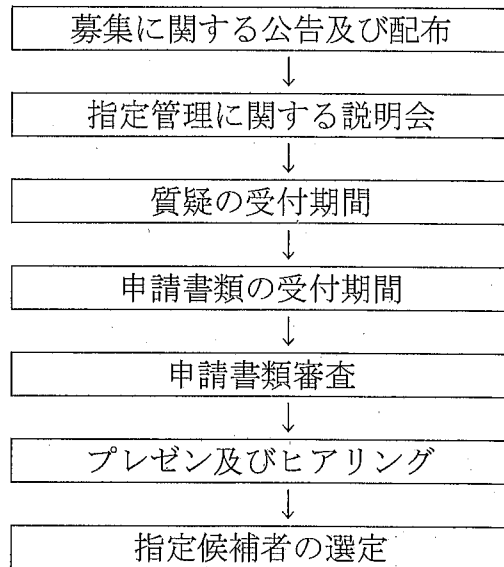 募集に関する公告及び配布
↓
指定管理に関する説明会
↓
質疑の受付期間
↓
申請書類の受付期間
↓
申請書類審査
↓
プレゼン及びヒアリング
↓
指定候補者の選定